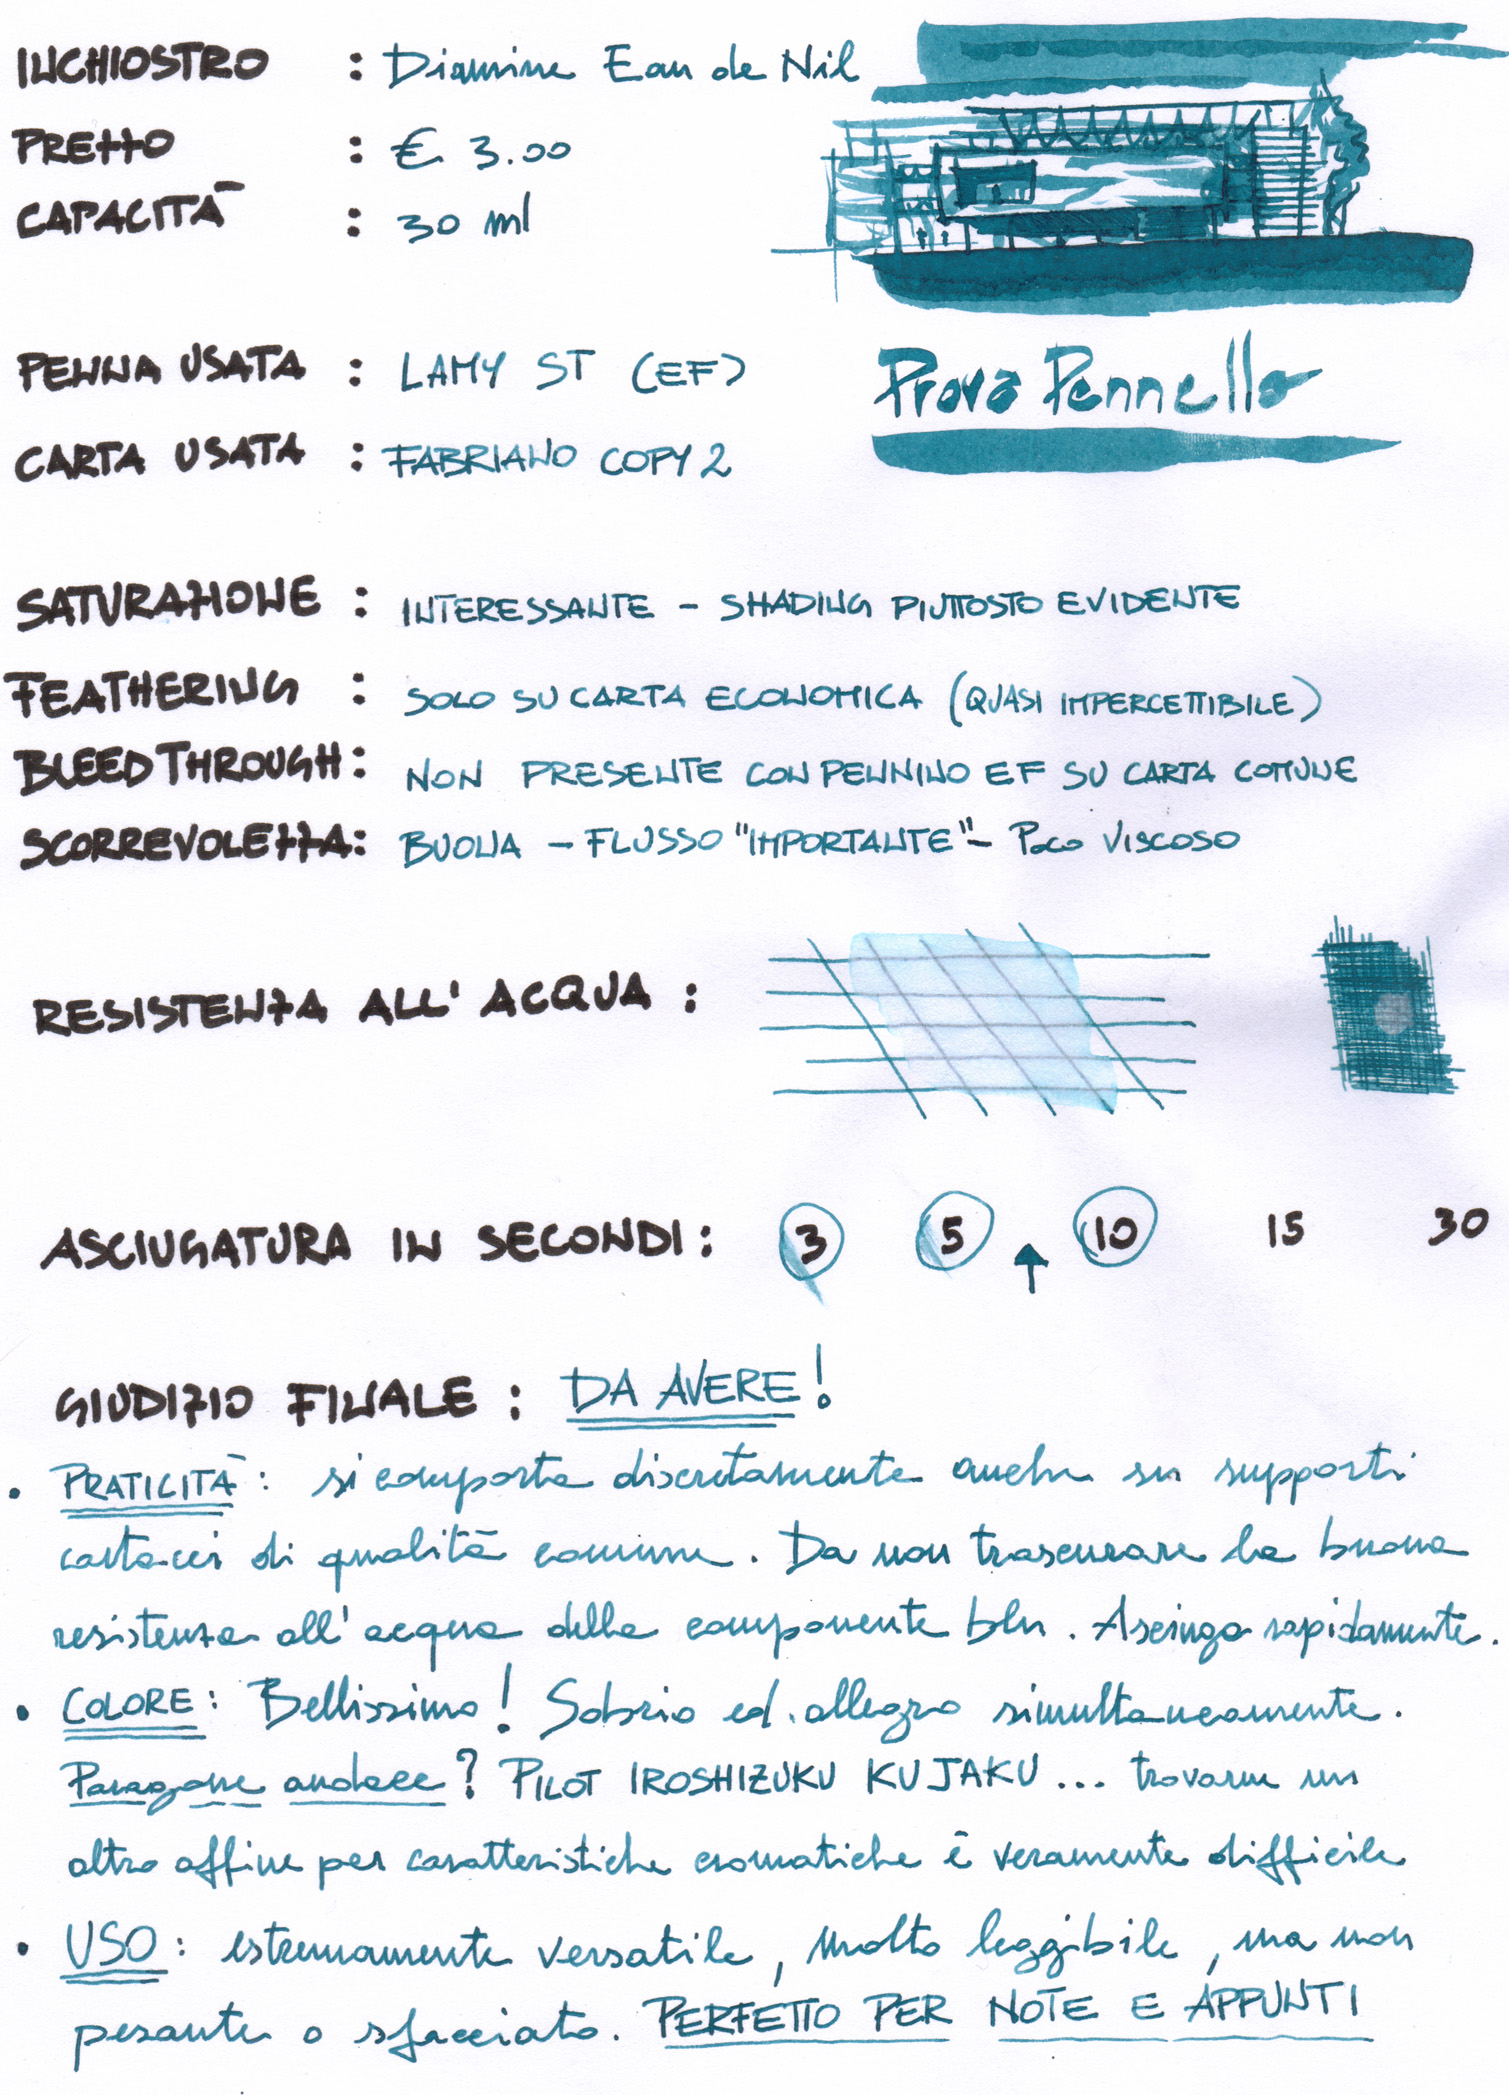 INCHIOSTRO : Diamine Eau de Nil
PREZZO : € 3.00
CAPACITÀ : 30 ml
PENNA USATA : LAMY ST (EF)
Prova Pennello
CARTA USATA : FABRIANO COPY 2
SATURAZIONE : INTERESSANTE - SHADING PIUTTOSTO EVIDENTE
FEATHERING : SOLO SU CARTA ECONOMICA (QUASI IMPERCETTIBILE)
BLEEDTHROUGH : NON PRESENTE CON PENNINO EF SU CARTA COMUNE
SCORREVOLEZZA : BUONA - FLUSSO "IMPORTANTE" - Poco VISCOSO
RESISTENZA ALL' ACQUA :
ASCIUGATURA IN SECONDI : 3 5 10 15 30
GIUDIZIO FINALE : DA AVERE!
• PRATICITÀ : si comporta discretamente anche su supporti
cartacei di qualità comune. Da non trascurare la buona
resistenza all'acqua della componente blu. Asciuga rapidamente.
• COLORE : Bellissimo! Sobrio ed allegro simultaneamente.
Paragone audace? PILOT IROSHIZUKU KUJAKU... trovarne un
altro affine per caratteristiche cromatiche è veramente difficile
• USO : estremamente versatile, molto leggibile, ma non
pesante o sfacciato. PERFETTO PER NOTE E APPUNTI